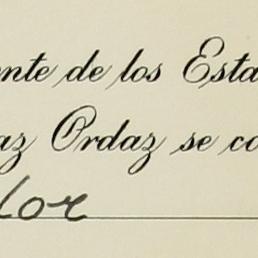 ente de los Esta
az Ordaz se co
lor